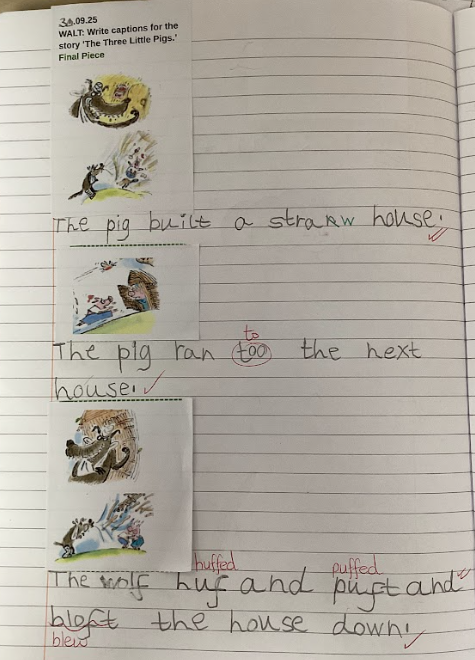 30.09.25
WALT: Write captions for the
story 'The Three Little Pigs.'
Final Piece
The pig built a straw house.
to
The pig ran too the next
house.
huffed puffed
The wolf huf and puft and
bloft the house down.
blew